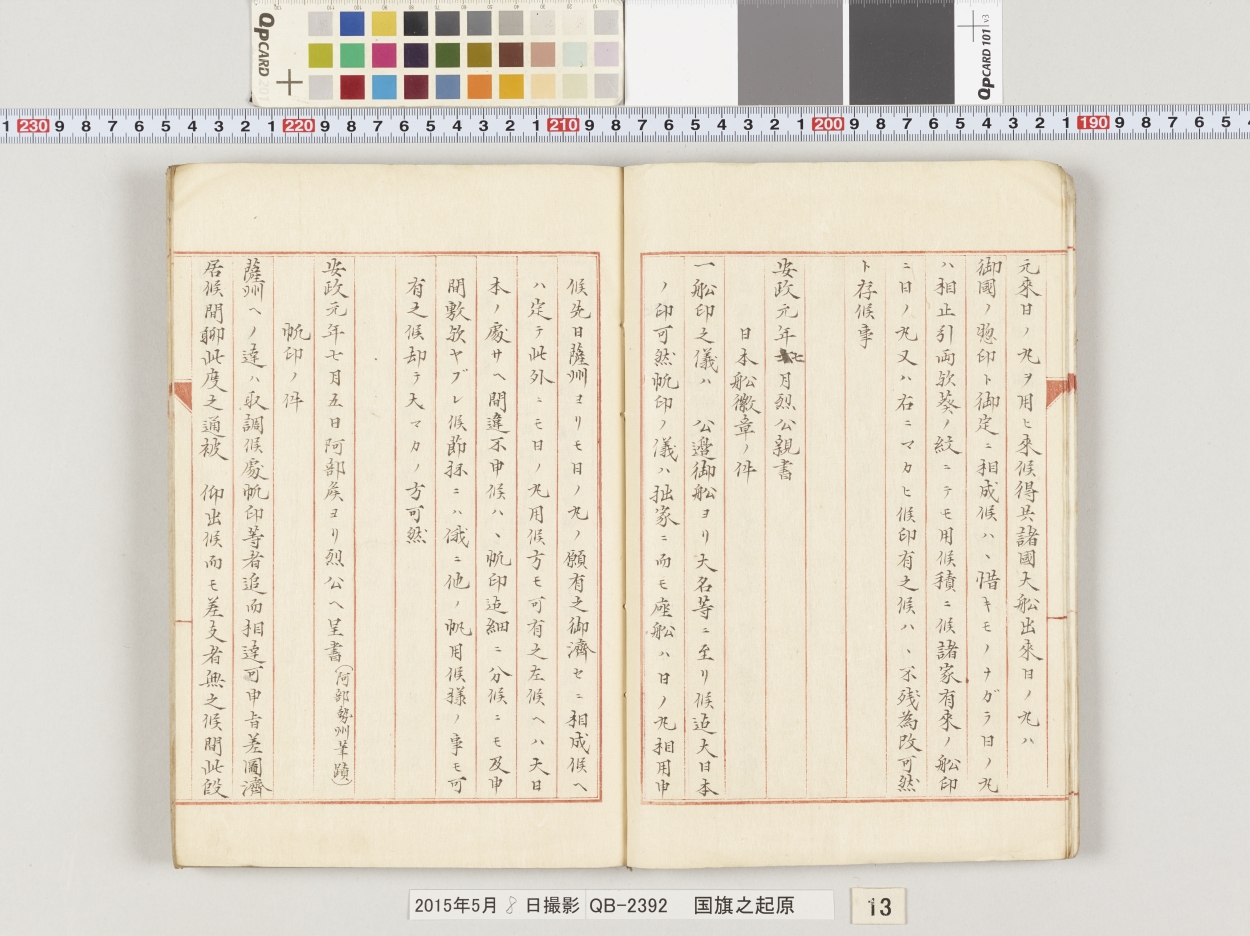 元來日ノ丸ヲ用ヒ來候得共諸國大船出來日ノ丸ハ
御國ノ惣印ト御定ニ相成候ハヽ惜キモノナガラ日ノ丸
ハ相止引両欤葵ノ紋ニテモ用候積ニ候諸家有來ノ船印
ニ日ノ丸又ハ右ニマカヒ候印有之候ハヽ不残為改可然
ト存候事
安政元年七月烈公親書
日本船徽章ノ件
一船印之儀ハ 公邉御船ヨリ大名等ニ至リ候迠大日本
ノ印可然帆印ノ儀ハ拙家ニ而モ座船ハ日ノ丸相用申
候先日薩州ヨリモ日ノ丸ノ願有之御濟セニ相成候ヘ
ハ定テ此外ニモ日ノ丸用候方モ可有之左候ヘハ大日
本ノ處サヘ間違不申候ハヽ帆印迠細ニ分候ニモ及申
間敷欤ヤブレ候節抔ニハ俄ニ他ノ帆用候様ノ事モ可
有之候却テ大マカノ方可然
安政元年七月五日阿部侯ヨリ烈公ヘ呈書(阿部勢州筆蹟)
帆印ノ件
薩州ヘノ達ハ取調候處帆印等者追而相達可申旨差圖濟
居候間聊此度之通被 仰出候而モ差支者無之候間此段
QPCARD
QPCARD 101 v3
1 230 9 8 7 6 5 4 3 2 1 220 9 8 7 6 5 4 3 2 1 210 9 8 7 6 5 4 3 2 1 200 9 8 7 6 5 4 3 2 1 190 9 8 7 6 5
2015年5月 8 日撮影 QB-2392 国旗之起原
13